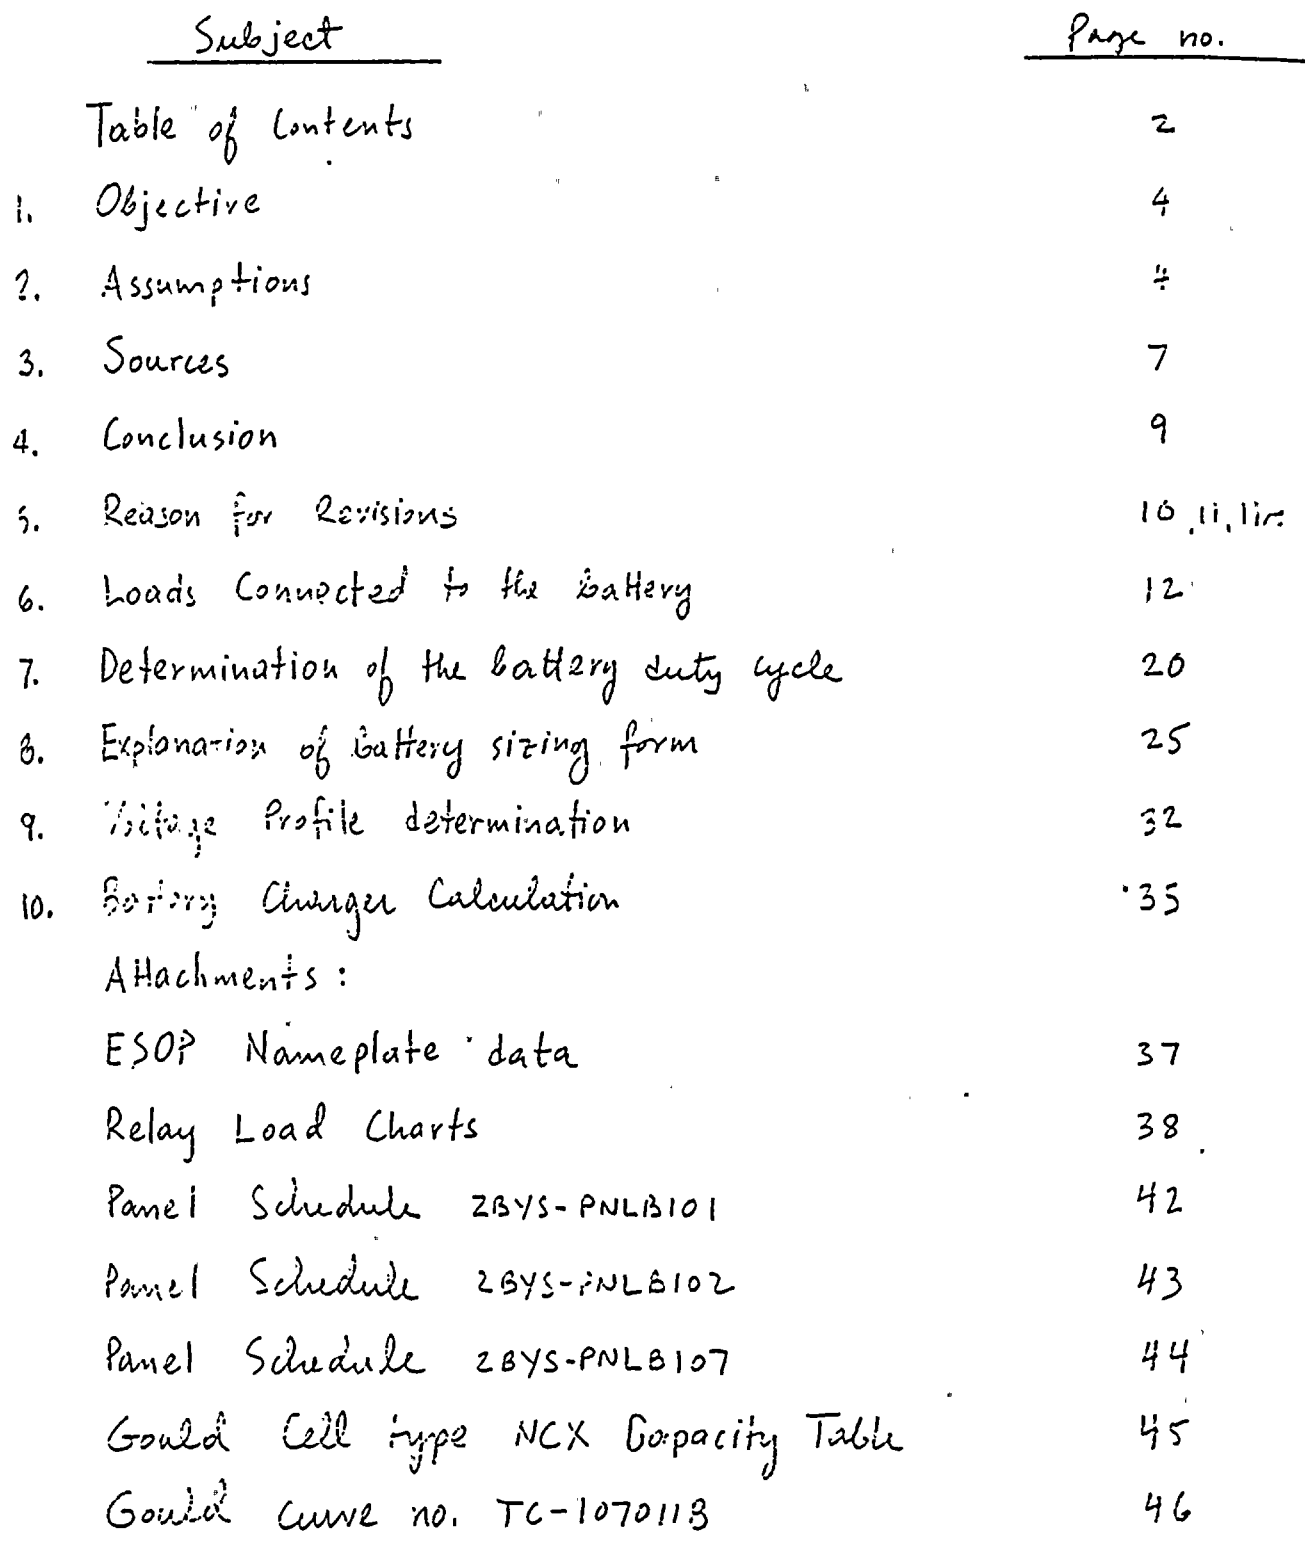 Subject Page no.
Table of Contents 2
1. Objective 4
2. Assumptions 4
3. Sources 7
4. Conclusion 9
5. Reason for Revisions 10, 11,
6. Loads Connected to the battery 12
7. Determination of the battery duty cycle 20
8. Explanation of battery sizing form 25
9. Voltage Profile determination 32
10. Battery Charger Calculation 35
Attachments:
ESOP Nameplate data 37
Relay Load Charts 38
Panel Schedule 2BYS-PNLB101 42
Panel Schedule 2BYS-PNLB102 43
Panel Schedule 2BYS-PNLB107 44
Gould Cell type NCX Capacity Table 45
Gould Curve no. 46